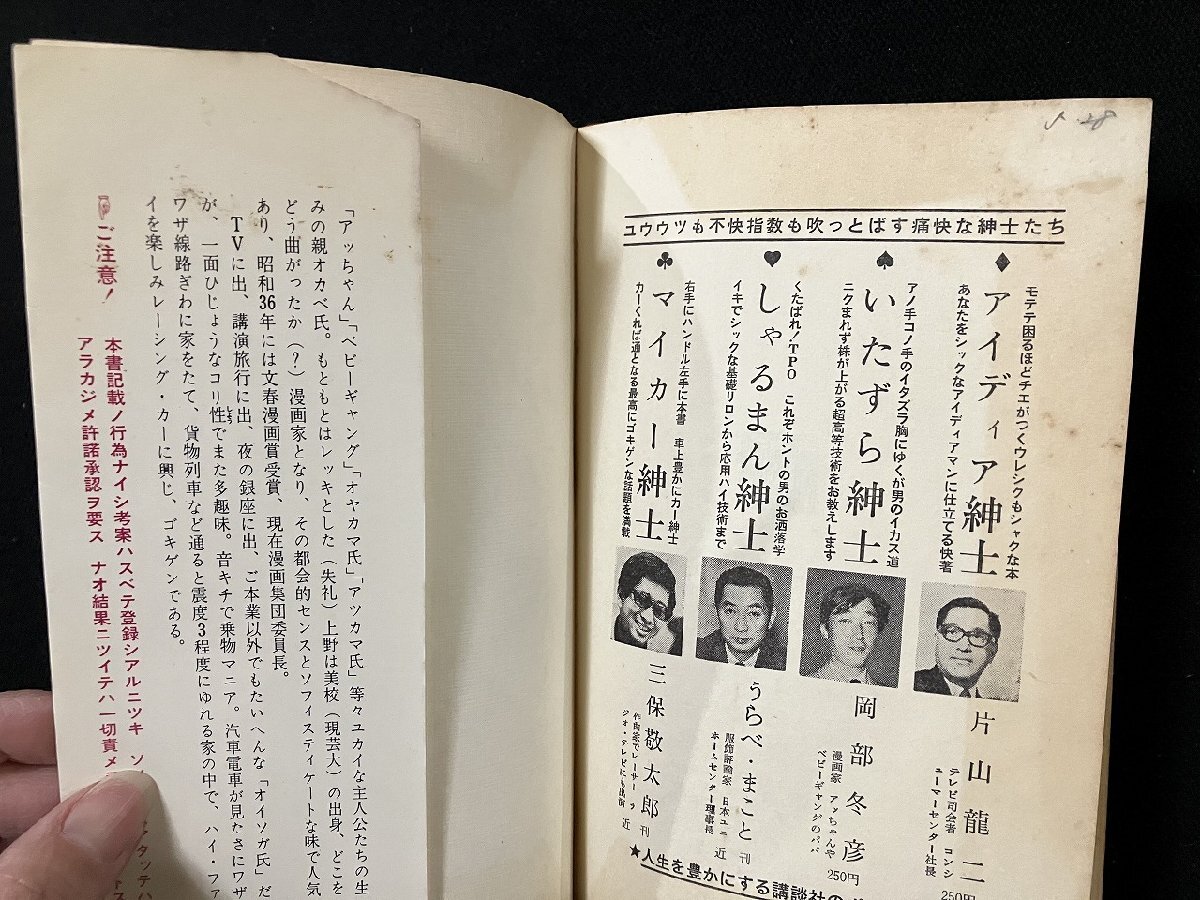 「アッちゃん」「ベビーギャング」「オヤカマ氏」「アツカマ氏」等々ユカイな主人公たちの生
みの親オカベ氏。もともとはレッキとした(失礼)上野は美校(現芸大)の出身、どこを
どう曲がったか(?)漫画家となり、その都会的センスとソフィスティケートな味で人気
あり、昭和36年には文春漫画賞受賞、現在漫画集団委員長。
TVに出、講演旅行に出、夜の銀座に出、ご本業以外でもたいへんな「オイソガ氏」だ
が、一面ひじょうなコリ性でまた多趣味。音キチで乗物マニア。汽車電車が見たさにワザ
ワザ線路ぎわに家をたて、貨物列車など通ると震度3程度にゆれる家の中で、ハイ・ファ
イを楽しみレーシング・カーに興じ、ゴキゲンである。
ご注意!
本書記載ノ行為ナイシ考案ハスベテ登録シアルニツキ
アラカジメ許諾承認ヲ要ス ナオ結果ニツイテハ一切責メ
ユウウツも不快指数も吹っとばす痛快な紳士たち
♦アイディア紳士
モテテ困るほどチエがつくウレシクもシャクな本
あなたをシックなアイディアマンに仕立てる快著
片山龍二
テレビ司会者 コンシ
ューマーセンター社長
250円
♠いたずら紳士
アノ手コノ手のイタズラ胸にゆくが男のイカス道
ニクまれず株が上がる超高等技術をお教えします
岡部冬彦
漫画家 アッちゃんや
ベビーギャングのパパ
250円
♥しゃるまん紳士
くたばれ!TPO これぞホントの男のお洒落学
イキでシックな基礎リロンから応用ハイ技術まで
うらべ・まこと
服飾評論家 日本ユニ
ホームセンター理事長
近刊
♣マイカー紳士
右手にハンドル左手に本書 車上豊かにカー紳士
カーくれば通となる最高にゴキゲンな話題を満載
三保敬太郎
作曲家でレーサー ラ
ジオ・テレビにも出演
近刊
★人生を豊かにする講談社の